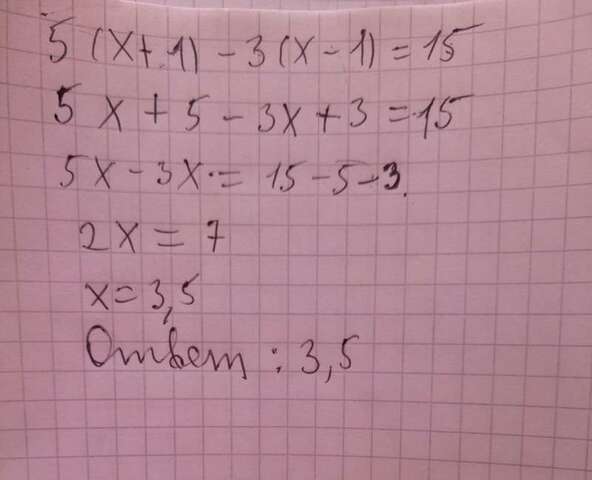 5 (x + 1) - 3 (x - 1) = 15
5 x + 5 - 3x + 3 = 15
5x - 3x = 15 - 5 - 3
2x = 7
x = 3,5
Ответ : 3,5